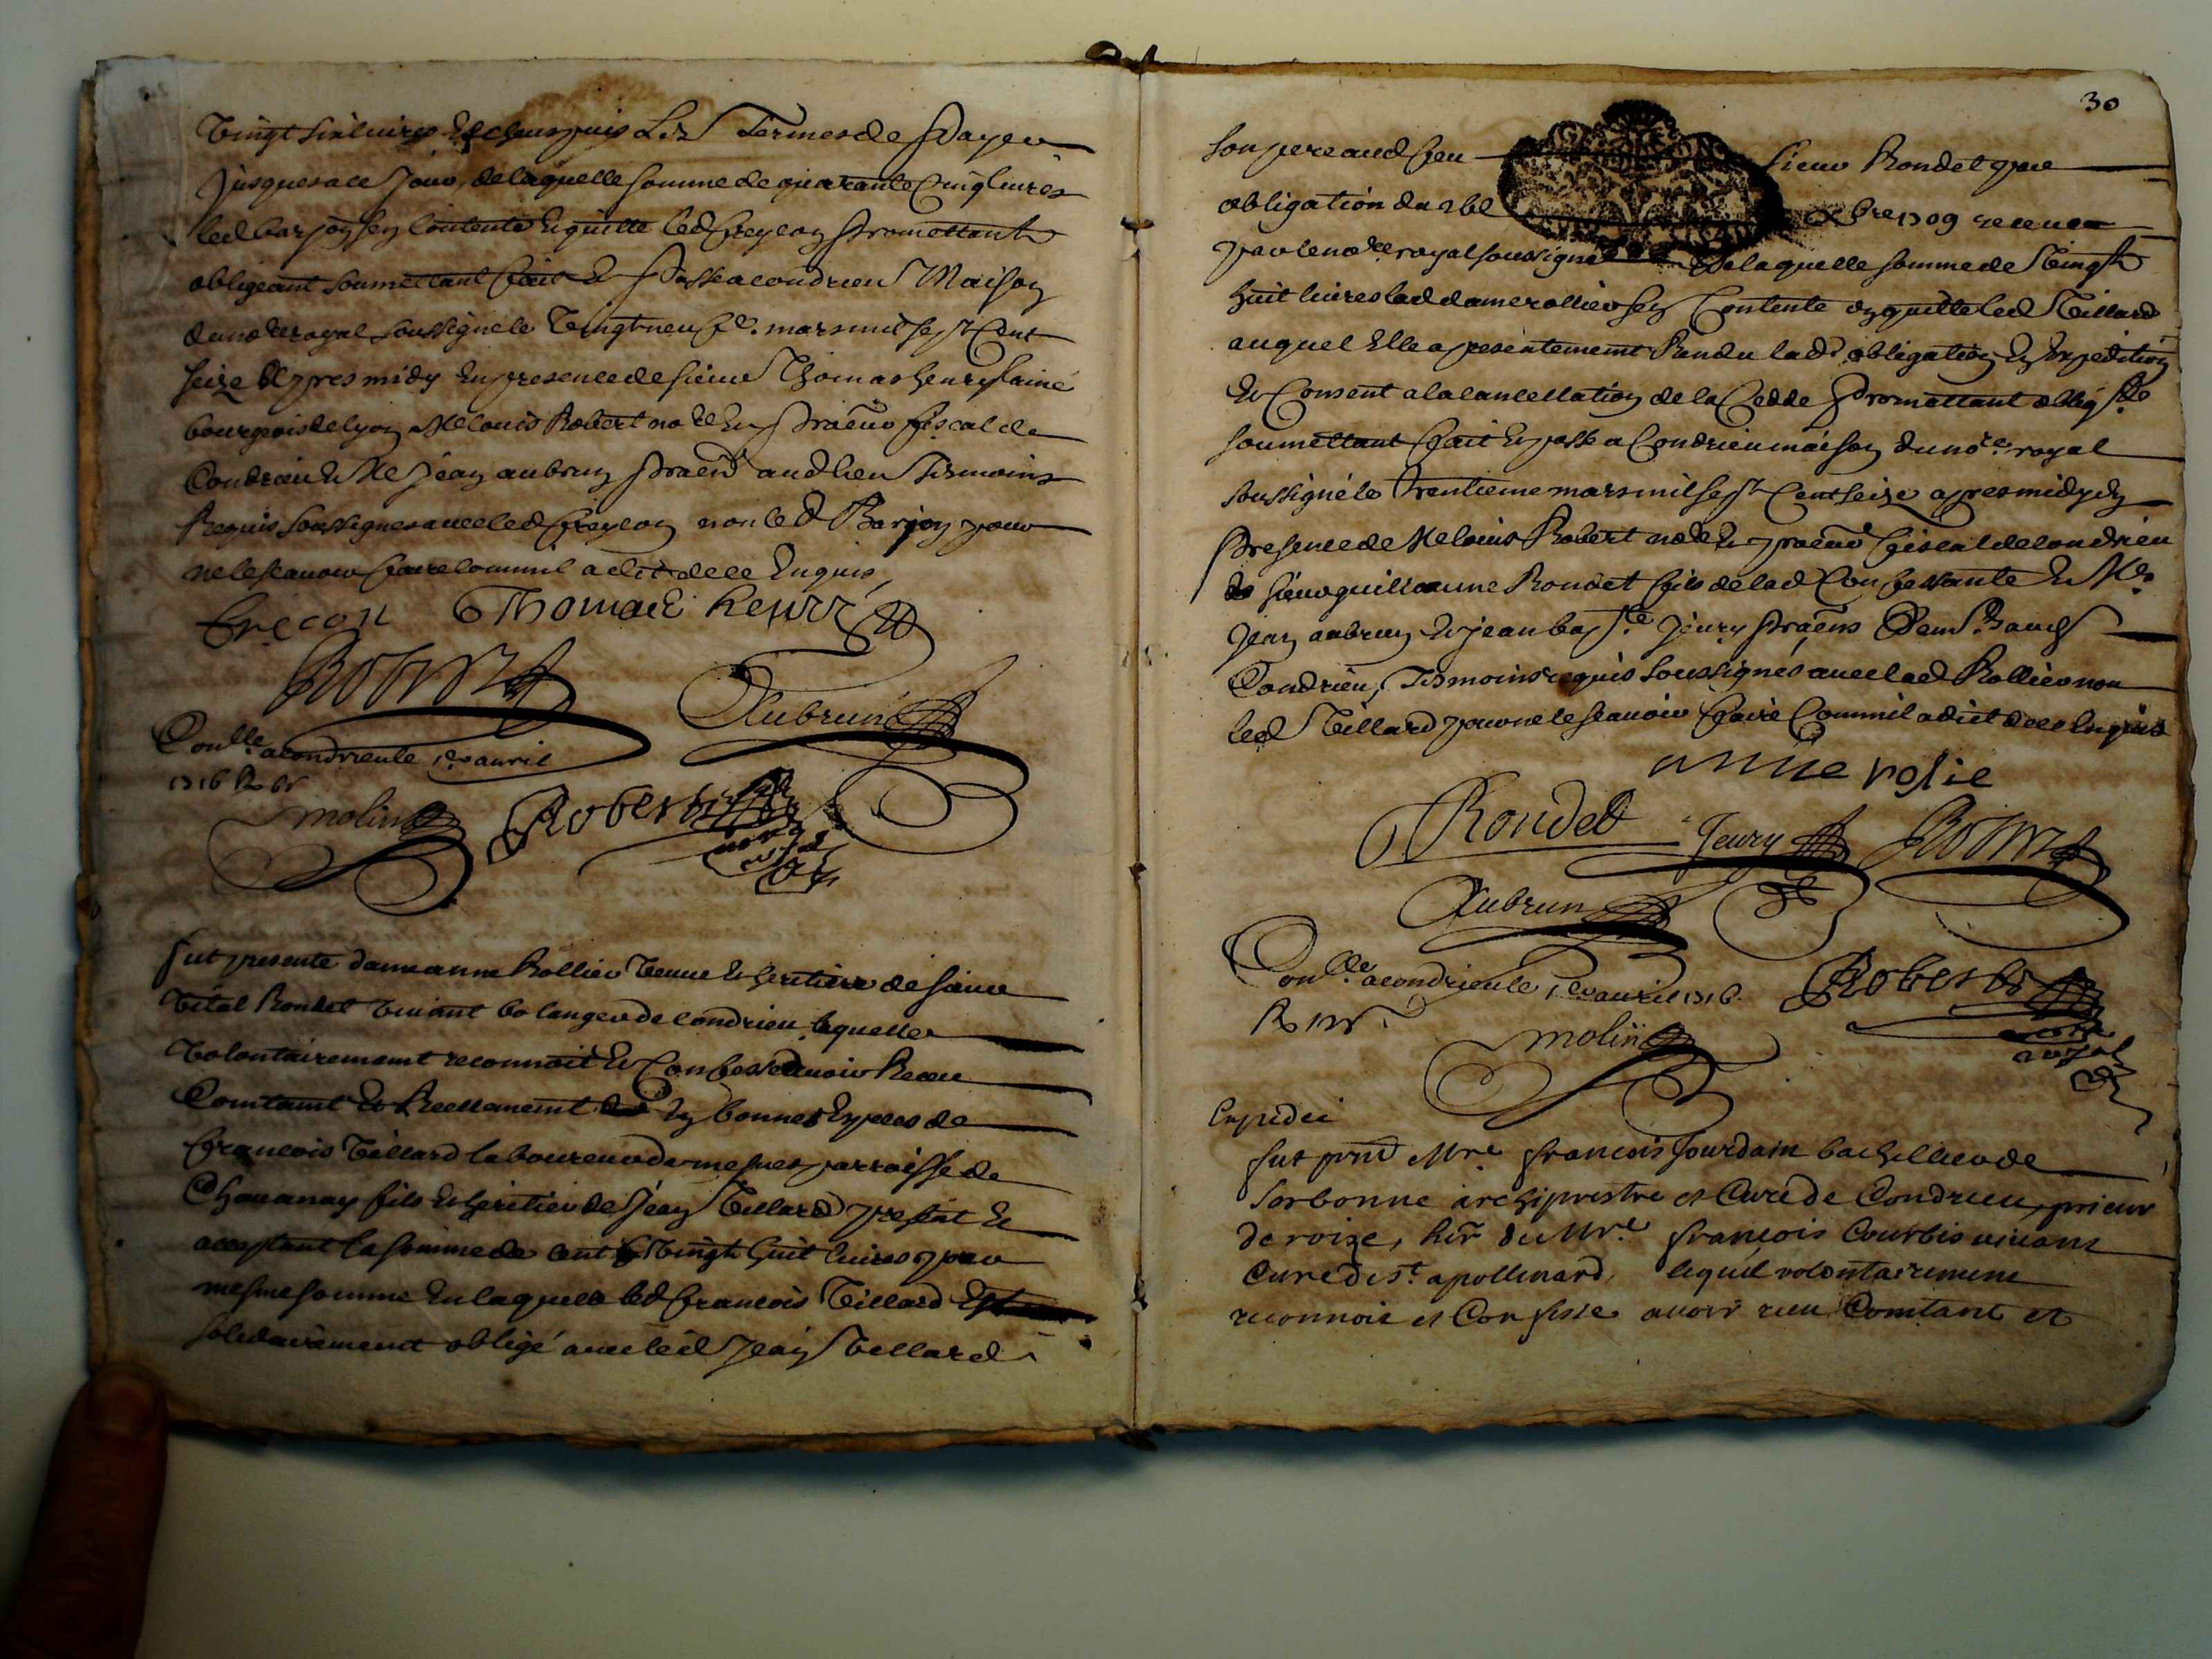 Vingt six livres Escheus puis Les Termes de Payer
Jusques a ce Jour, de laquelle somme de quarante Cinq livres
led barjoy sen Contente Equitte led freycon Promettant
obligeant soumettant fait & Passé a condrieu Maison
du nore royal soussigné le Vingt neufe. mars mil sept Cent
seize Apres midy En presence de sieur Thomas henry laine
bourgeois de lyon Me louis Robert nore Et Procur fiscal de
Condrieu & Me Jean aubrun Pracn audlieu Tesmoins
Requis soussignes avec led freycon non led Barjoy pour
ne le scavoir faire comm il a dit de ce Enquis,
frecon Thomas henri
Robert
Aubrun
Conlle a condrieu le 1er avril
1716 R 6s
molin Roberts
nore
royal
fut presente dame anne Rollier Veuve & heritiere de sieur
Vital Rondet vivant bolanger de condrieu laquelle
Volontairement reconnoit & Confesse avoir Receu
Comtamt & Reellement En bonnes Especes de
francois Teillard laboureur de mesnes parroisse de
Chavanay fils & heritier de Jean Teillard present &
acceptant la somme de cent Vingt huit livres pour
mesme somme En laquelle led francois Teillard Est
solidairement obligé avec led Jean Teillard
30
son pere aud feu sieur Rondet par
obligation du xbre 1709 receue
par le nore royal soussigné de laquelle somme de Vingt
huit livres lad dame rollier sen Contente en quitte led Teillard
auquel Elle a presentement Randu ladt obligation En Expedition
Et Consent a la cancellation de la Cedde Promettant oblig
soumettant fait & passé a Condrieu maison du nore royal
soussigné le trentieme mars mil sept Cent seize apres midy En
Presence de Me louis Robert nore & procur fiscal de condrieu
sieur guillaume Rondet fils de lad Confessante & Me
Jean aubrun & jean bapte Jeury Pracns Demt aud
Condrieu, Tesmoins requis soussignés avec lad Rollier non
led Teillard pour ne le scavoir faire Comm il a dict de ce Enquis
anne rolie
Rondet Jeury Robert
Aubrun
Conlle a condrieu le 1er avril 1716.
R 12s. Roberts
nore
royal
molin
Expedié
fut pnt Mre francois Jourdain bachellier de
Sorbonne archiprestre et Curé de Condrieu, prieur
de roize, her de Mre francois Courbis vivant
Curé de st apollinard, lequel volontairement
reconnoit et Confesse avoir receu Comtant et